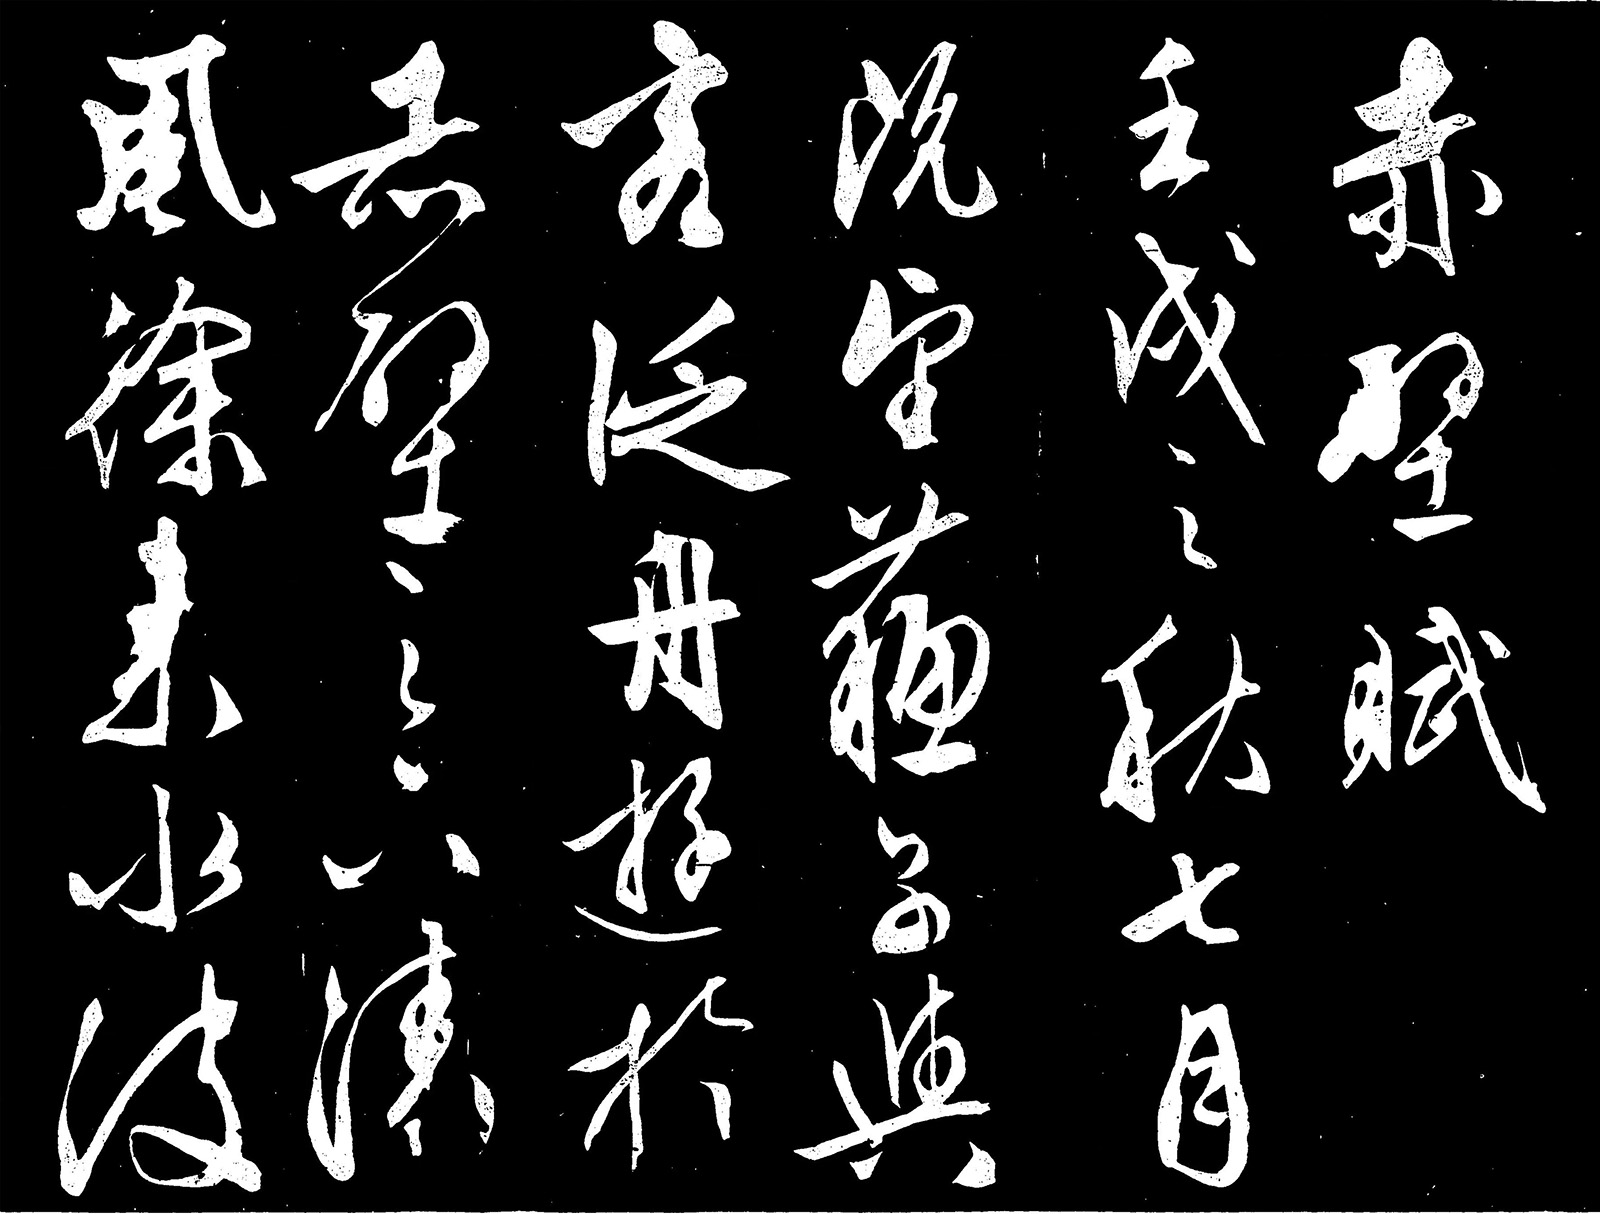 赤壁賦
壬戌之秋七月
既望蘇子與
客泛舟遊於
赤壁之下清
風徐來水波